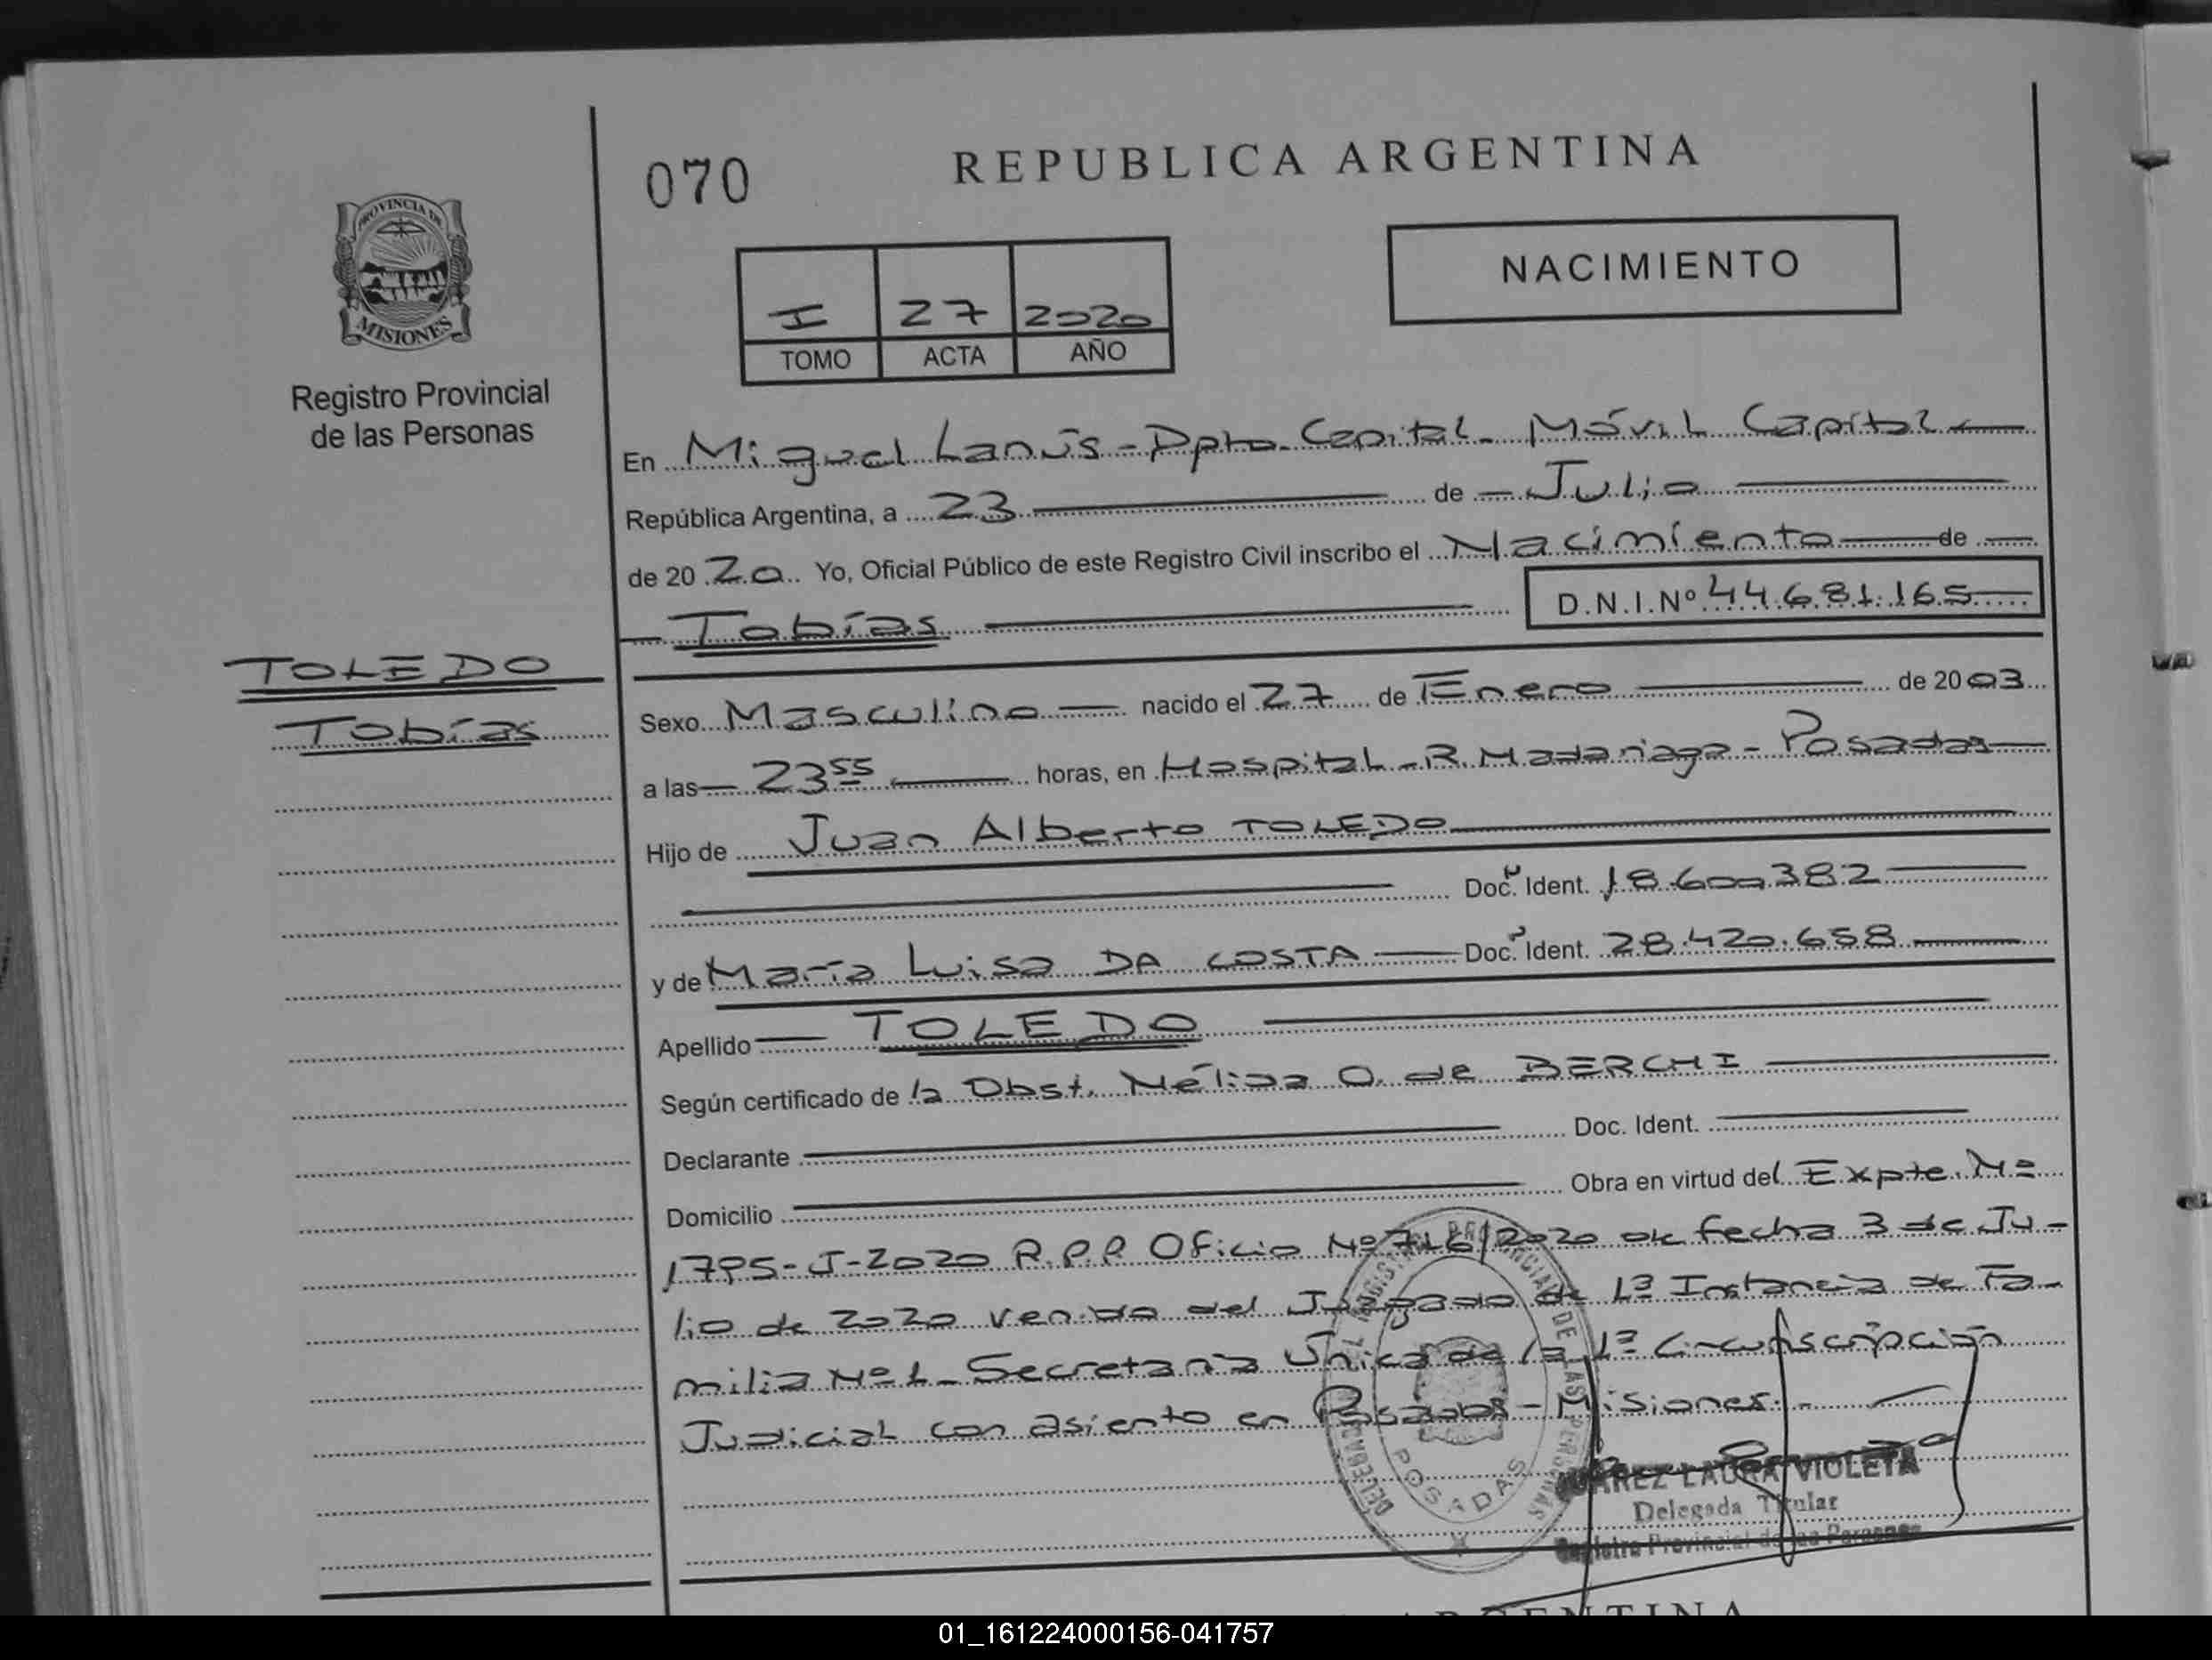 070
REPUBLICA ARGENTINA
PROVINCIA DE
MISIONES
Registro Provincial
de las Personas
I 27 2020
TOMO ACTA AÑO
NACIMIENTO
En Miguel Lanús - Dpto. Capital - Móvil Capital
República Argentina, a 23 de Julio
de 2020 Yo, Oficial Público de este Registro Civil inscribo el Nacimiento de
Tobías D.N.I.Nº 44.681.165
TOLEDO
Tobías
Sexo Masculino nacido el 27 de Enero de 2003
a las 23 55 horas, en Hospital - R. Madariaga - Posadas
Hijo de Juan Alberto TOLEDO
Doc. Ident. 18.600.382
y de María Luisa DA COSTA Doc. Ident. 28.420.658
Apellido TOLEDO
Según certificado de la Obst. Nélida O. de BERCHI
Declarante Doc. Ident.
Domicilio Obra en virtud del Expte. Nº
1795-J-2020 R.P.P Oficio Nº 716/2020 de fecha 3 de Ju-
lio de 2020 venido del Juzgado de 1ª Instancia de Fa-
milia Nº 1 - Secretaría Única de la 1ª Circunscripción
Judicial con asiento en Posadas - Misiones.-
POSADAS
JUAREZ LAURA VIOLETA
Delegada Titular
Registro Provincial de las Personas
ARGENTINA
01_161224000156-041757